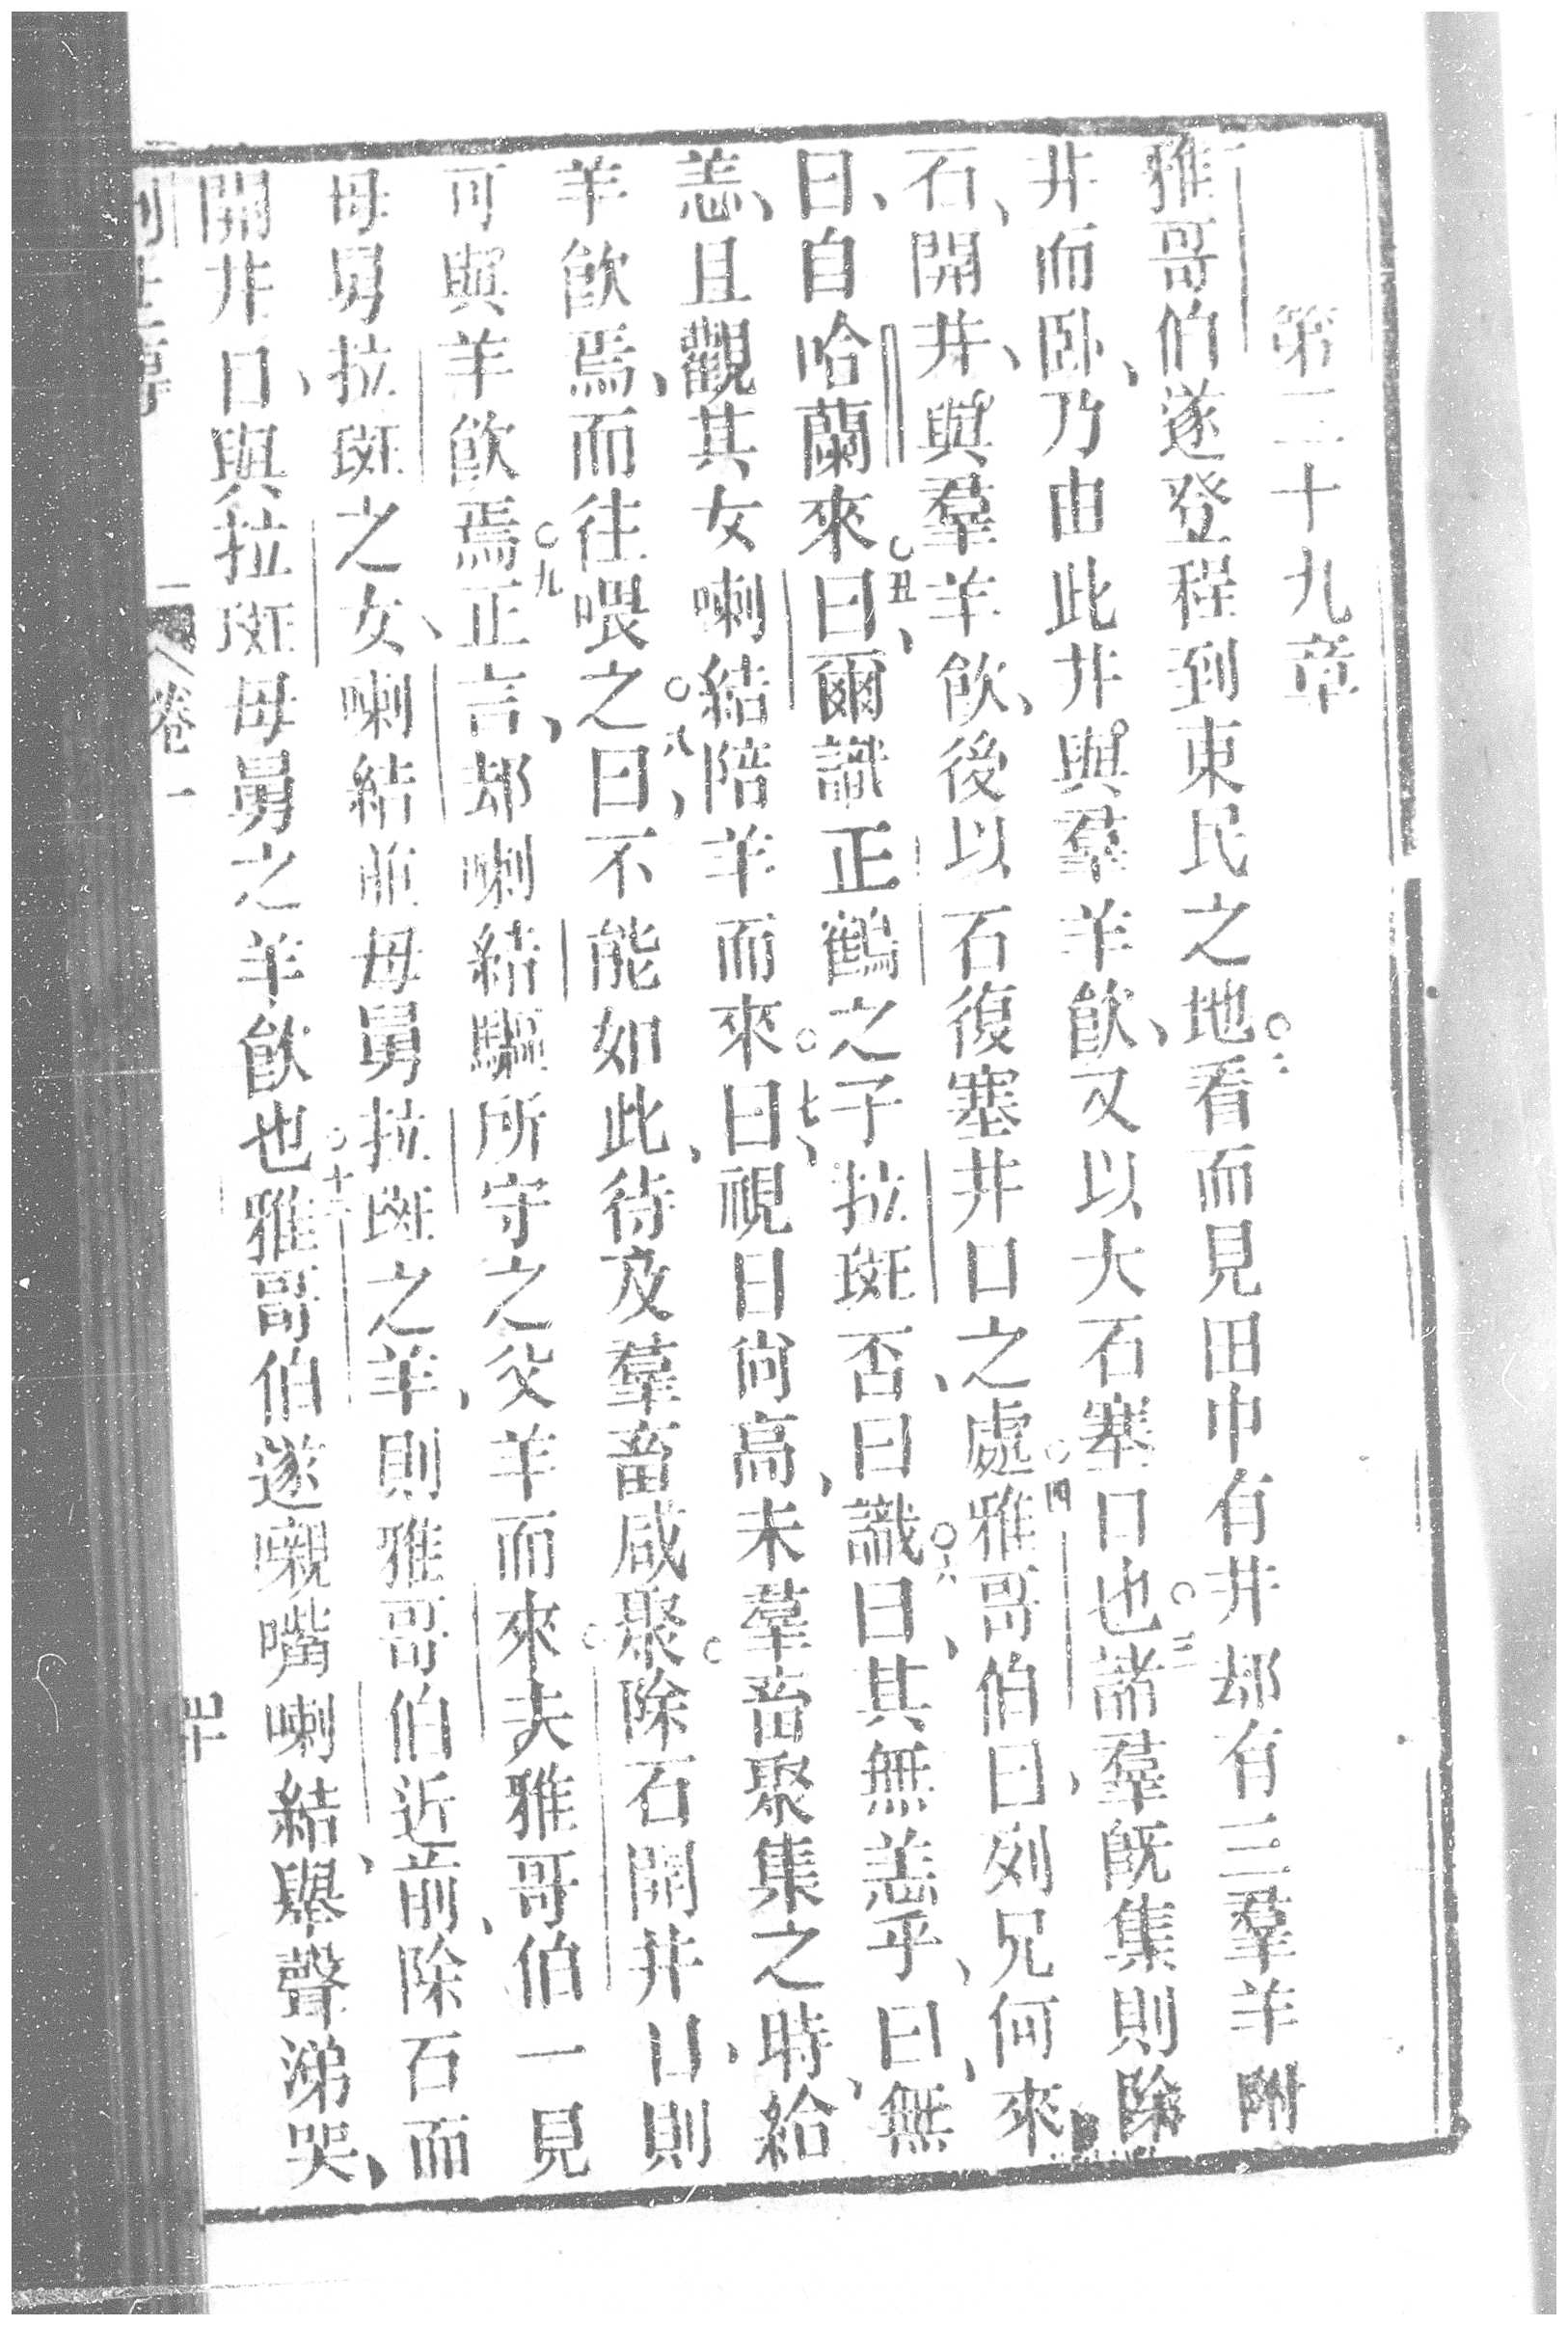 第二十九章
雅哥伯遂登程到東民之地○二看而見田中有井却有三羣羊附
井而卧、乃由此井與羣羊飲、又以大石塞口也○三諸羣旣集則除
石、開井、與羣羊飲、後以石復塞井口之處○四雅哥伯曰、列兄何來
曰、自哈蘭來○五、曰爾識正鶴之子拉斑否、曰識○六、曰其無恙乎、曰、無
恙、且觀其女喇結陪羊而來○七、曰視日尙高、未羣畜聚集之時、給
羊飲焉、而往喂之○八、曰不能如此、待及羣畜咸聚○除石開井口、則
可與羊飲焉○九正言、却喇結驅所守之父羊而來○夫雅哥伯一見
母舅拉斑之女、喇結並母舅拉斑之羊、則雅哥伯近前、除石而
開井口、與拉斑母舅之羊飲也○十一雅哥伯遂嚫嘴喇結、舉聲涕哭、
卷一
四十